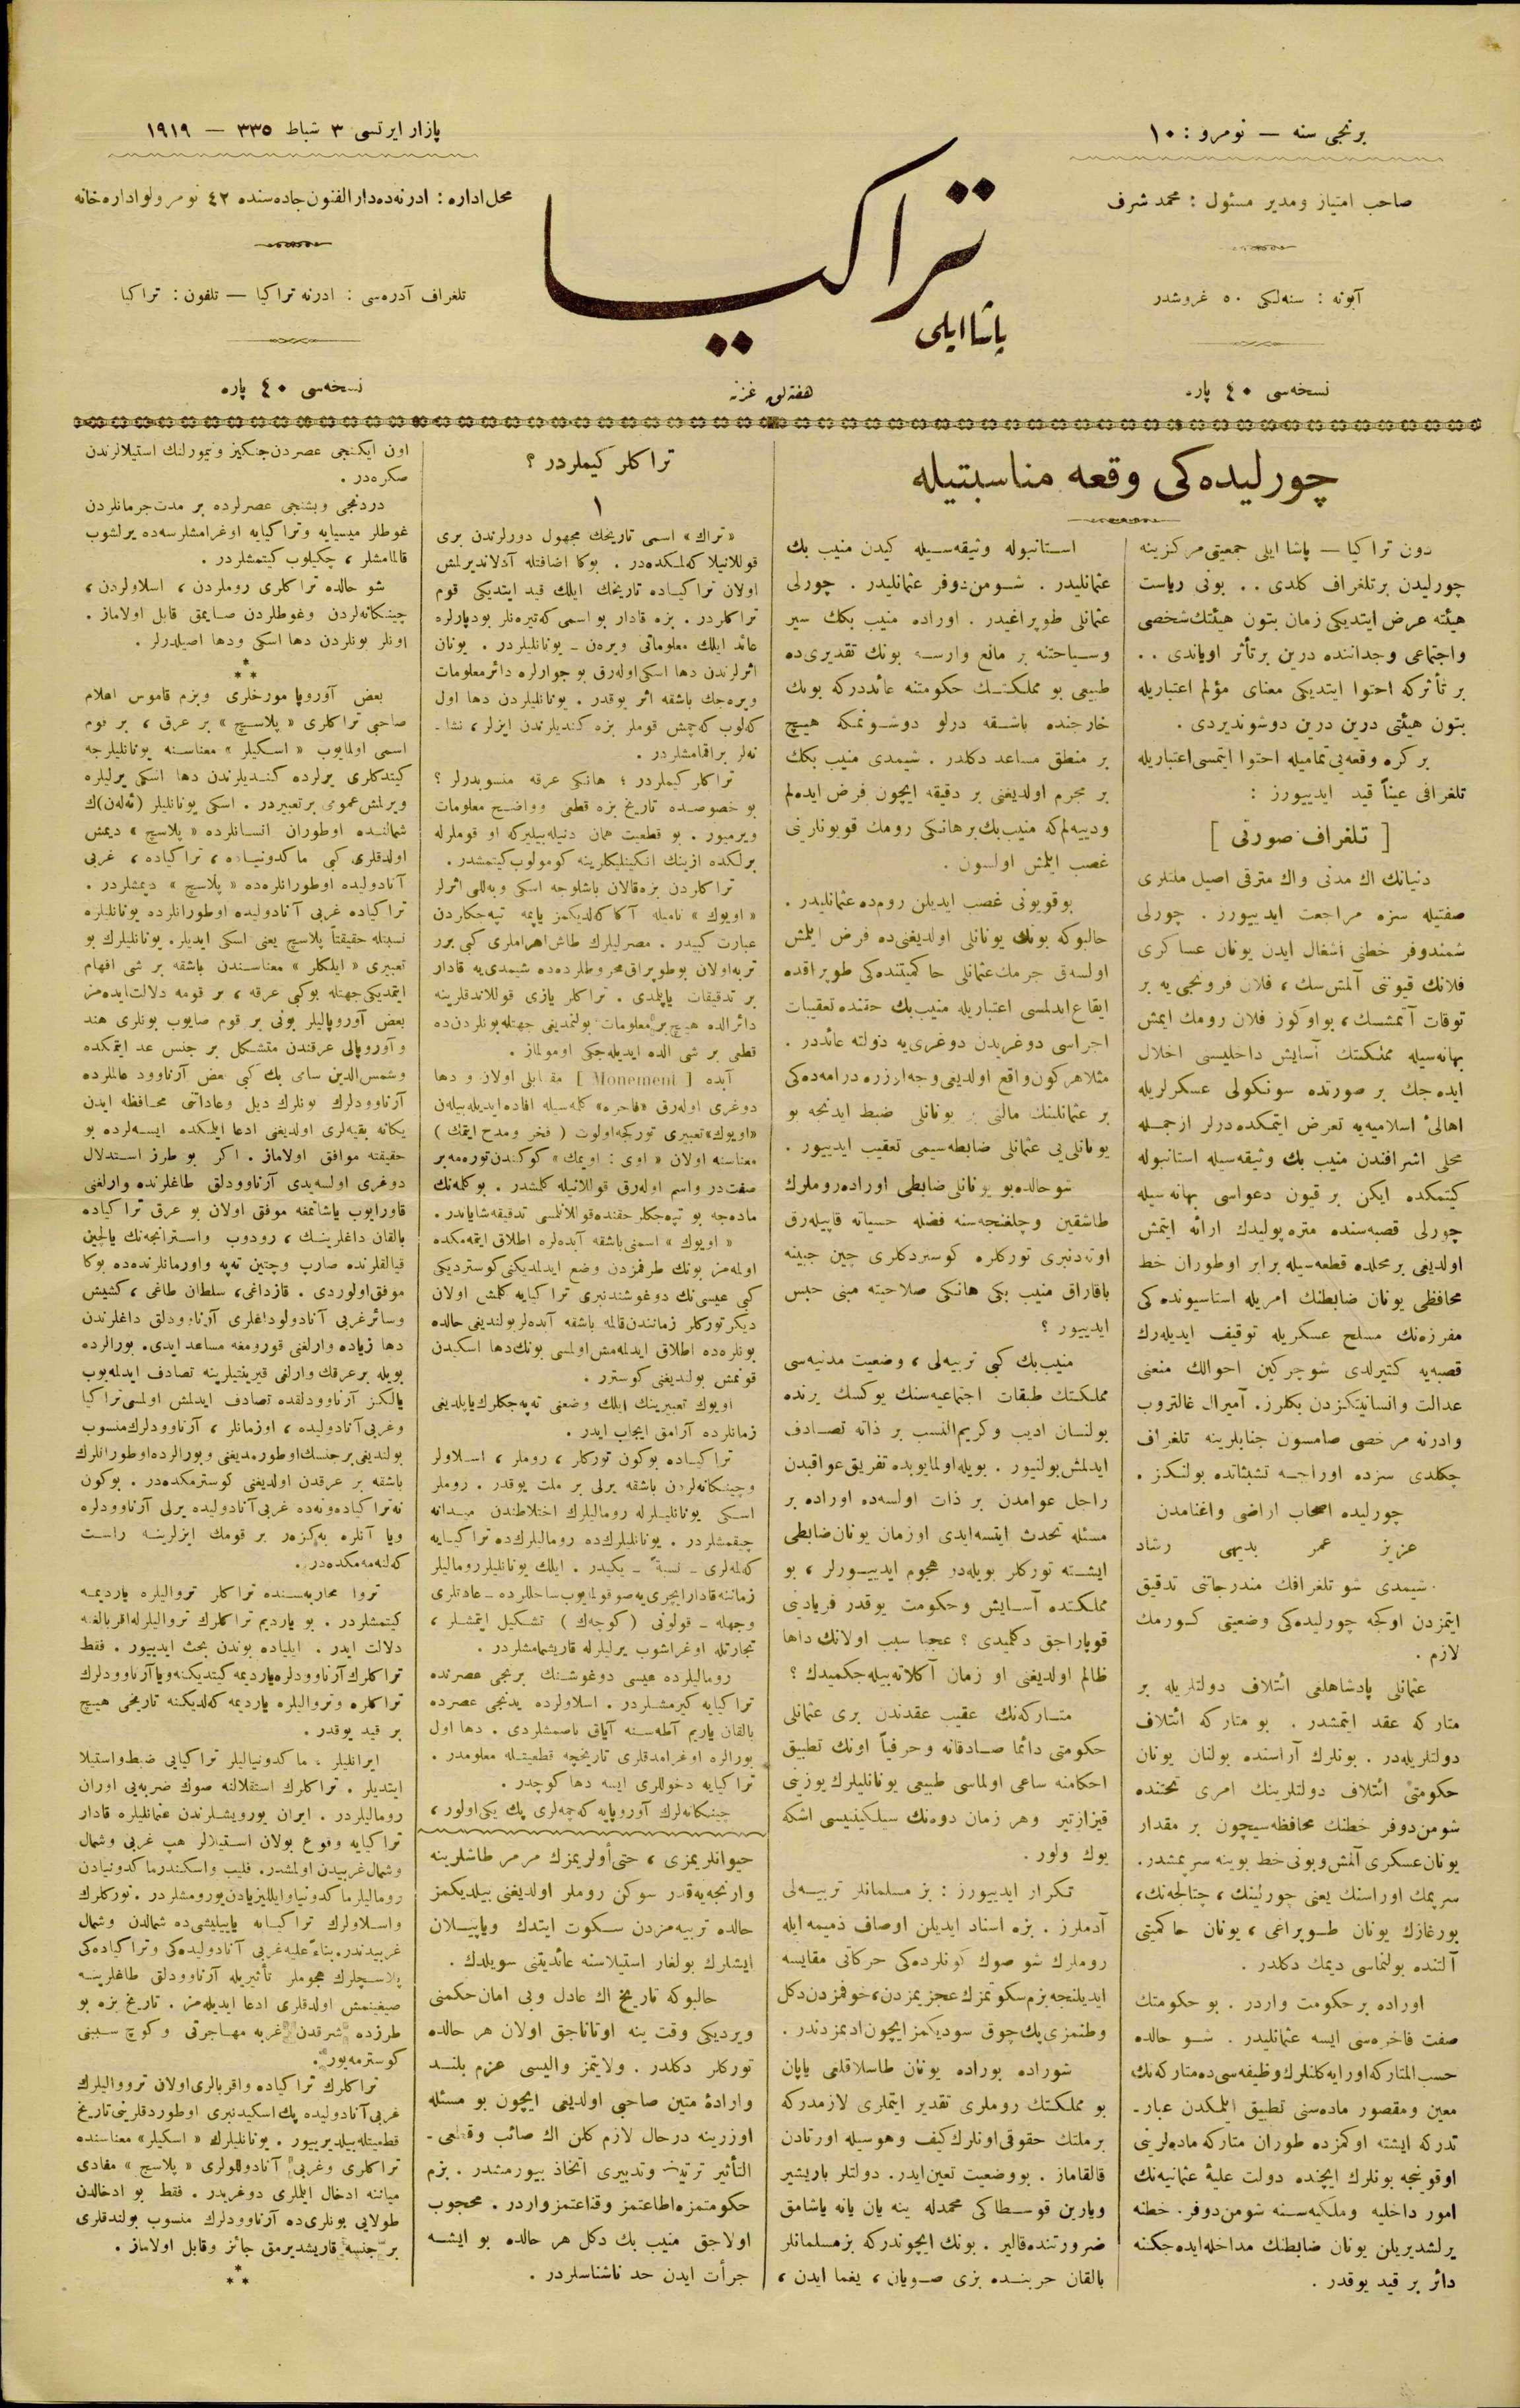 برنجی سنه — نومرو : ١٠
صاحب امتیاز ومدیر مسئول : محمد شرف
آبونه : سنه‌لكی ٥٠ غروشدر
نسخه‌سی ٤٠ پاره
تراکیا
پاشا ایلی
هفته‌لق غزته
پازار ایرتسی ٣ شباط ٣٣٥ — ١٩١٩
محل اداره : ادرنه‌ده دار الفنون جاده‌سنده ٤٢ نومرولو اداره خانه
تلغراف آدره‌سی : ادرنه تراکیا — تلفون : تراکیا
نسخه‌سی ٤٠ پاره
چورلیده‌کی وقعه مناسبتیله
دون تراکیا — پاشا ایلی جمعیتی مرکزینه
چورلیدن بر تلغراف کلدی . . بونی ریاست
هیئته عرض ایتدیکی زمان بتون هیئتك شخصی
واجتماعی وجداننده درین بر تأثر اویاندی . .
بر تأثرکه احتوا ایتدیکی معنای مؤلم اعتباریله
بتون هیئتی درین درین دوشوندیردی .
بر کره وقعه‌یی تمامیله احتوا ایتمسی اعتباریله
تلغرافی عیناً قید ایدییورز :
[ تلغراف صورتی ]
دنیانك اك مدنی واك مترقی اصیل ملتلری
صفتیله سزه مراجعت ایدییورز . چورلی
شمندوفر خطنی اشغال ایدن یونان عساکری
فلانك قیوننی آلمش‌سك ، فلان فرونجی‌یه بر
توقات آتمشسك ، بو اوکوز فلان رومك ایمش
بهانه‌سیله مملکتك آسایش داخلیسنی اخلال
ایده‌جك بر صورتده سونکولی عسکرلریله
اهالئ اسلامیه‌یه تعرض ایتمکده درلر ازجمله
محلی اشرافندن منیب بك وثیقه‌سیله استانبوله
کیتمکده ایکن بر قیون دعواسی بهانه‌سیله
چورلی قصبه‌سنده متره‌پولیدك ارائه ایتمش
اولدیغی بر محلده قطعه‌سیله برابر اوطوران خط
محافظی یونان ضابطنك امریله استاسیونده‌کی
مفرزه‌نك مسلح عسکریله توقیف ایدیله‌رك
قصبه‌یه کتیرلدی شو چرکین احوالك منعنی
عدالت وانسانیتکزدن بکلرز . آمیرال غالتروب
وادرنه مرخصی صامسون جنابلرینه تلغراف
چکلدی سزده اوراجه تشبثاتده بولنکز .
چورلیده اصحاب اراضی واغنامدن
عزیز عمر بدیهی رشاد
شیمدی شو تلغرافك مندرجاتنی تدقیق
ایتمزدن اوکجه چورلیده‌کی وضعیتی کورمك
لازم .
عثمانلی پادشاهلغی ائتلاف دولتلریله بر
متارکه عقد ایتمشدر . بو متارکه ائتلاف
دولتلریله‌در . بونلرك آراسنده بولنان یونان
حکومتی ائتلاف دولتلرینك امری تحتنده
شومن‌دوفر خطنك محافظه‌سیچون بر مقدار
یونان عسکری آلمش وبونی خط بوینه سرپمشدر .
سرپمك اوراسنك یعنی چورلینك ، چتالجه‌نك ،
بورغازك یونان طوپراغی ، یونان حاکمیتی
آلتنده بولنماسی دیمك دکلدر .
اوراده بر حکومت واردر . بو حکومتك
صفت فاخره‌سی ایسه عثمانلیدر . شو حالده
حسب المتارکه اورایه کلنلرك وظیفه‌سی ده متارکه‌نك
معین ومقصور ماده‌سنی تطبیق ایتمکدن عبار-
تدرکه ایشته اوکمزده طوران متارکه ماده‌لرینی
اوقوینجه بونلرك ایچنده دولت علیۀ عثمانیه‌نك
امور داخلیه وملکیه‌سنه شومن‌دوفر خطنه
یرلشدیریلن یونان ضابطنك مداخله ایده‌جکنه
دائر بر قید یوقدر .
استانبوله وثیقه‌سیله کیدن منیب بك
عثمانلیدر . شومن‌دوفر عثمانلیدر . چورلی
عثمانلی طوپراغیدر . اوراده منیب بکك سیر
وسیاحتنه بر مانع وارسه بونك تقدیری‌ده
طبیعی بو مملکتك حکومتنه عائددرکه بونك
خارجنده باشقه درلو دوشونمکه هیچ
بر منطق مساعد دکلدر . شیمدی منیب بکك
بر مجرم اولدیغنی بر دقیقه ایچون فرض ایده‌لم
ودییه‌لم‌که منیب بك بر هانکی رومك قویونلرینی
غصب ایلمش اولسون .
بو قویونی غصب ایدیلن روم‌ده عثمانلیدر .
حالبوکه بونك یونانلی اولدیغنی‌ده فرض ایلمش
اولسه‌ق جرمك عثمانلی حاکمیتنده‌کی طوپراقده
ایقاع ایدلمسی اعتباریله منیب بك حقنده تعقیبات
اجراسی دوغریدن دوغری‌یه دولته عائددر .
بر عثمانلینك مالنی بر یونانلی ضبط ایدنجه بو
یونانلی‌یی عثمانلی ضابطه‌سیمی تعقیب ایدییور .
شو حالده بو یونانلی ضابطی اوراده روملرك
طاشقین وچلغنجه‌سنه فضله حسیاته قاپیله‌رق
اوته‌دنبری تورکلره کوستردکلری چین جبینه
باقاراق منیب بکی هانکی صلاحیته مبنی حبس
ایدییور ؟
منیب بك کبی تربیه‌لی ، وضعیت مدنیه‌سی
مملکتك طبقات اجتماعیه‌سنك یوکسك یرنده
بولنسان ادیب وکریم النسب بر ذاته تصادف
ایدلمش بولنیور . بویله اولمایوب‌ده تفریق عواقبدن
راجل عوامدن بر ذات اولسه‌ده اوراده بر
مسئله تحدث ایتسه‌ایدی اوزمان یونان ضابطی
ایشته تورکلر بویله‌در هجوم ایدییورلر ، بو
مملکتده آسایش وحکومت یوقدر فریادینی
قوپاراجق دکلمیدی ؟ عجبا سبب اولانك داها
ظالم اولدیغنی او زمان آکلاته‌بیله‌جکمیدك ؟
متارکه‌نك عقیب عقدندن بری عثمانلی
حکومتی دائما صادقانه وحرفیاً اونك تطبیق
احکامنه ساعی اولماسی طبیعی یونانلیلرك یوزینی
قیزارتیر وهر زمان دوه‌نك سیلکینیسی اشکه
یوك ولور .
تکرار ایدییورز : بز مسلمانلر تربیه‌لی
آدملرز . بزه اسناد ایدیلن اوصاف ذمیمه ایله
روملرك شو صوك کونلرده‌کی حرکاتی مقایسه
ایدیلنجه بزم سکوتمزك عجزیمزدن، خوفمزدن دکل
وطنمزی پك چوق سودیکمز ایچون ادمزدندر .
شوراده بوراده یونان طاسلاقلغی یاپان
بو مملکتك روملری تقدیر ایتملری لازمدرکه
بر ملتك حقوقی اونلرك کیف وهوسیله اورتادن
قالقاماز . بو وضعیت تعین ایدر. دولتلر باریشیر
ویارین قوسطاکی محمدله ینه یان یانه یاشامق
ضرورتنده قالیر . بونك ایچوندرکه بز مسلمانلر
بالقان حربنده بزی صویان ، یغما ایدن ،
حیوانلریمزی ، حتی أولریمزك مرمر طاشلرینه
وارنجه‌یه قدر سوکن روملر اولدیغنی بیلدیکمز
حالده تربیه‌مزدن سکوت ایتدك ویاپیلان
ایشلرك بولغار استیلاسنه عائدیتنی سویلدك .
حالبوکه تاریخ اك عادل وبی امان حکمنی
ویردیکی وقت ینه اوتاناجق اولان هر حالده
تورکلر دکلدر . ولایتمز والیسی عزم بلند
وارادۀ متین صاحبی اولدیغی ایچون بو مسئله
اوزرینه درحال لازم کلن اك صائب وقطعی-
التأثیر ترتیب وتدبیری اتخاذ بیورمشدر . بزم
حکومتمزه اطاعتمز وقناعتمز واردر . محجوب
اولاجق منیب بك دکل هر حالده بو ایشه
جرأت ایدن حد ناشناسلردر .
تراکلر کیملردر ؟
١
« تراك » اسمی تاریخك مجهول دورلرندن بری
قوللانیلا کلمکده‌در . بوکا اضافتله آدلاندیرلمش
اولان تراکیاده تاریخك ایلك قید ایتدیکی قوم
تراکلردر . بزه قادار بو اسمی که‌تیره‌نلر بودیارلره
عائد ایلك معلوماتی ویره‌ن - یونانلیلردر . یونان
اثرلرندن دها اسکی اوله‌رق بو جوارلره دائر معلومات
ویره‌جك باشقه اثر یوقدر . یونانلیلردن دها اول
که‌لوب که‌چمش قوملر بزه کندیلرندن ایزلر ، نشا-
نه‌لر براقمامشلردر .
تراکلر کیملردر ؛ هانکی عرقه منسوبدرلر ؟
بو خصوصده تاریخ بزه قطعی وواضح معلومات
ویرمیور . بو قطعیت همان دنیله‌بیلیرکه او قوملرله
برلکده ازینك انکینلیکلرینه کومولوب کیتمشدر .
تراکلردن بزه قالان باشلوجه اسکی وبه‌للی اثرلر
« اویوك » نامیله آکاکه‌لدیکمز یاپمه تپه‌جکلردن
عبارت کبیدر . مصرلیلرك طاش اهراملری کبی برر
تربه اولان بو طوپراق مخروطلرده‌ده شیمدی‌یه قادار
بر تدقیقات یاپلمدی . تراکلر یازی قوللاندقلرینه
دائر الده هیچ بر معلومات بولنمدیغی جهتله بونلردن‌ده
قطعی بر شی الده ایدیله‌جکی اومولماز .
آبده [ Monement ] مقابلی اولان ودها
دوغری اوله‌رق «فاخره» کلمه‌سیله افاده ایدیله‌بیله‌ن
«اویوك» تعبیری تورکجه اولوب ( فخر ومدح ایتمك )
معناسنه اولان « اوی : اویمك » کوکندن توره‌مه بر
صفت‌در واسم اوله‌رق قوللانیله کلمشدر . بو کلمه‌نك
ماده‌جه بو تپه‌جکلر حقنده قوللانلمسی تدقیقه شایاندر .
« اویوك » اسمنی باشقه آبده‌لره اطلاق ایتمه‌مکده
اولمه‌مز بونك طرفمزدن وضع ایدلمدیکنی کوستردیکی
کبی عیسی‌نك دوغوشندنبری تراکیایه کلمش اولان
دیکر تورکلر زمانندن قالمه باشقه آبده‌لر بولندیغی حالده
بونلره‌ده اطلاق ایدلمه‌مش اولمسی بونك دها اسکیدن
قونمش بولندیغنی کوسترر .
اویوك تعبیرینك ایلك وضعنی ته‌په‌جکلرك یاپلدیغی
زمانلرده آرامق ایجاب ایدر .
تراکیاده بوکون تورکلر ، روملر ، اسلاولر
وچینکانه‌لردن باشقه یرلی بر ملت یوقدر . روملر
اسکی یونانلیلرله رومالیلرك اختلاطندن میدانه
چیقمشلردر . یونانلیلرك‌ده رومالیلرك‌ده تراکیایه
که‌لمه‌لری - نسبةً - یکیدر . ایلك یونانلیلر رومالیلر
زماننه قادار ایچری‌یه صوقولمایوب ساحللرده - عادتلری
وجهله - قولونی ( کوچه‌ك ) تشکیل ایتمشلر ،
تجارتله اوغراشوب یرلیلرله قاریشمامشلردر .
رومالیلرده عیسی دوغوشنك برنجی عصرنده
تراکیایه کیرمشلردر . اسلاولرده یدنجی عصرده
بالقان یاریم آطه‌سنه آیاق باصمشلردی . دها اول
بورالره اوغرامدقلری تاریخجه قطعیتله معلومدر .
تراکیایه دخوللری ایسه دها کوچدر .
چینکانه‌لرك آوروپایه که‌چمه‌لری پك یکی اولور ،
اون ایکنجی عصردن جنکیز وتیمورلنك استیلالرندن
صکره‌در .
دردنجی وبشنجی عصرلرده بر مدت جرمانلردن
غوطلر میسیایه وتراکیایه اوغرامشلرسه‌ده یرلشوب
قالمامشلر ، چکیلوب کیتمشلردر .
شو حالده تراکلری روملردن ، اسلاولردن ،
چینکانه‌لردن وغوطلردن صایمق قابل اولاماز .
اونلر بونلردن دها اسکی ودها اصیلدرلر .
* * *
بعض آوروپا مورخلری وبزم قاموس اعلام
صاحبی تراکلری « پلاسج » بر عرق ، بر قوم
اسمی اولمایوب « اسکیلر » معناسنه یونانلیلرجه
کیتدکلری یرلرده کندیلرندن دها اسکی یرلیلره
ویرلمش عمومی بر تعبیردر . اسکی یونانلیلر (ئه‌له‌ن)ك
شمالنده اوطوران انسانلرده « پلاسج » دیمش
اولدقلری کبی ماکدونیاده ، تراکیاده ، غربی
آنادولیده اوطورانلره‌ده « پلاسج » دیمشلردر .
تراکیاده غربی آنادولیده اوطورانلرده یونانلیلره
نسبتله حقیقتاً پلاسج یعنی اسکی ایدیلر . یونانلیلرك بو
تعبیری « ایلکلر » معناسندن باشقه بر شی افهام
ایتمدیکی جهتله بوکبی عرقه ، بر قومه دلالت ایده‌مز
بعض آوروپالیلر بونی بر قوم صایوب بونلری هند
وآوروپالی عرقندن متشکل بر جنس عد ایتمکده
وشمس‌الدین سامی بك کبی بعض آرناوود عالملرده
آرناوودلرك بونلرك دیل وعاداتنی محافظه ایدن
یکانه بقیه‌لری اولدیغنی ادعا ایلمکده ایسه‌لرده بو
حقیقته موافق اولاماز . اکر بو طرز استدلال
دوغری اولسه‌یدی آرناوودلق طاغلرنده وارلغنی
قورایوب یاشاتمغه موفق اولان بو عرق تراکیاده
بالقان داغلرینك ، رودوپ واسترانجه‌نك یالچین
قیالقلرنده صارپ وچتین ته‌په واورمانلرنده‌ده بوکا
موفق اولوردی . قازداغی ، سلطان طاغی ، کشیش
وسائر غربی آنادولو داغلری آرناوودلق داغلرندن
دها زیاده وارلغنی قورومغه مساعد ایدی . بورالرده
بویله بر عرقك وارلغی قیرینتیلرینه تصادف ایدلمه‌یوب
یالکز آرناوودلقده تصادف ایدلمش اولمسی تراکیا
وغربی آنادولیده ، اوزمانلر ، آرناوودلرك منسوب
بولندیغی بر جنسك اوطورمدیغنی وبورالرده اوطورانلرك
باشقه بر عرقدن اولدیغنی کوسترمکده‌در . بوکون
نه تراکیاده ونه‌ده غربی آنادولیده یرلی آرناوودلره
ویا آنلره به‌کزه‌ر بر قومك ایزلرینه راست
که‌لنه‌مه‌مکده‌در .
تروا محاربه‌سنده تراکلر تروالیلره یاردیمه
کیتمشلردر . بو یاردیم تراکلرك تروالیلرله اقربالغنه
دلالت ایدر . ایلیاده بوندن بحث ایدییور . فقط
تراکلرك آرناوودلره یاردیمه کیتدیکنه ویا آرناوودلرك
تراکلره وتروالیلره یاردیمه که‌لدیکنه تاریخی هیچ
بر قید یوقدر .
ایرانلیلر ، ماکدونیالیلر تراکیایی ضبط واستیلا
ایتدیلر . تراکلرك استقلالنه صوك ضربه‌یی اوران
رومالیلردر . ایران یورویشلرندن عثمانلیلره قادار
تراکیایه وقوع بولان استیلالر هپ غربی وشمال
وشمال غربییدن اولمشدر . فلیب واسکندر ماکدونیادن
رومالیلر ماکدونیا وایللیریادن یورومشلردر . تورکلرك
واسلاولرك تراکیایه یاییلیشی‌ده شمالدن وشمال
غربیدندر. بناءً علیه غربی آنادولیده‌کی وتراکیاده‌کی
پلاسجلرك هجوملر تأثیریله آرناوودلق طاغلرینه
صیغینمش اولدقلری ادعا ایدیله‌مز . تاریخ بزه بو
طرزده شرقدن غربه مهاجرتی وکوچ سببنی
کوسترمه‌یور .
تراکلرك تراکیاده واقربالری اولان تروالیلرك
غربی آنادولیده پك اسکیدنبری اوطوردقلرینی تاریخ
قطعیتله بیلدیرییور . یونانلیلرك « اسکیلر » معناسنده
تراکلری وغربی آنادوللولری « پلاسج » مفادی
میاننه ادخال ایلملری دوغریدر . فقط بو ادخالدن
طولایی بونلری‌ده آرناوودلرك منسوب بولندقلری
بر جنسه قاریشدیرمق جائز وقابل اولاماز .
* * *